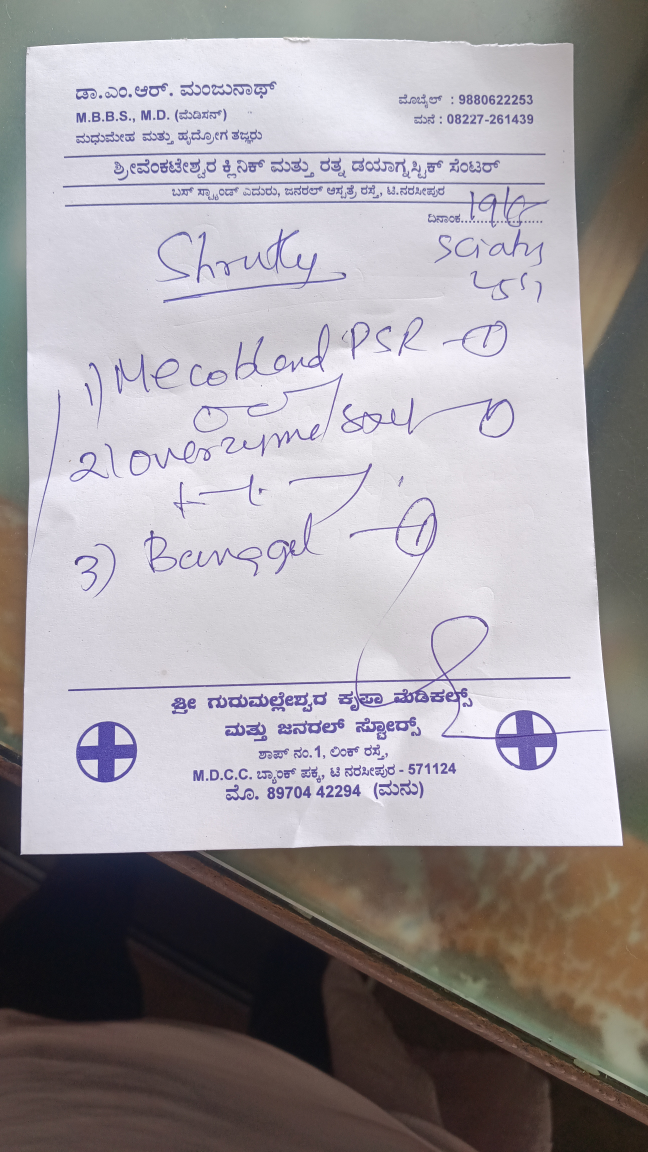 ಡಾ.ಎಂ.ಆರ್. ಮಂಜುನಾಥ್
M.B.B.S., M.D. (ಮೆಡಿಸನ್)
ಮಧುಮೇಹ ಮತ್ತು ಹೃದ್ರೋಗ ತಜ್ಞರು
ಮೊಬೈಲ್ : 9880622253
ಮನೆ : 08227-261439
ಶ್ರೀವೆಂಕಟೇಶ್ವರ ಕ್ಲಿನಿಕ್ ಮತ್ತು ರತ್ನ ಡಯಾಗ್ನಸ್ಟಿಕ್ ಸೆಂಟರ್
ಬಸ್ ಸ್ಟ್ಯಾಂಡ್ ಎದುರು, ಜನರಲ್ ಆಸ್ಪತ್ರೆ ರಸ್ತೆ, ಟಿ.ನರಸೀಪುರ
ದಿನಾಂಕ
1) Mecoblend PSR - 1
2)
3)
ಶ್ರೀ ಗುರುಮಲ್ಲೇಶ್ವರ ಕೃಪಾ ಮೆಡಿಕಲ್ಸ್
ಮತ್ತು ಜನರಲ್ ಸ್ಟೋರ್ಸ್
ಶಾಪ್ ನಂ.1, ಲಿಂಕ್ ರಸ್ತೆ,
M.D.C.C. ಬ್ಯಾಂಕ್ ಪಕ್ಕ, ಟಿ ನರಸೀಪುರ - 571124
ಮೊ. 89704 42294 (ಮನು)